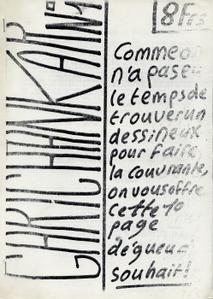 GARICHANKAR N°1
8Frs
Comme on
n'a pas eu
le temps de
trouver un
dessineux
pour faire
la couvrante,
on vous offre
cette 1e
page
dégueu à
souhait!